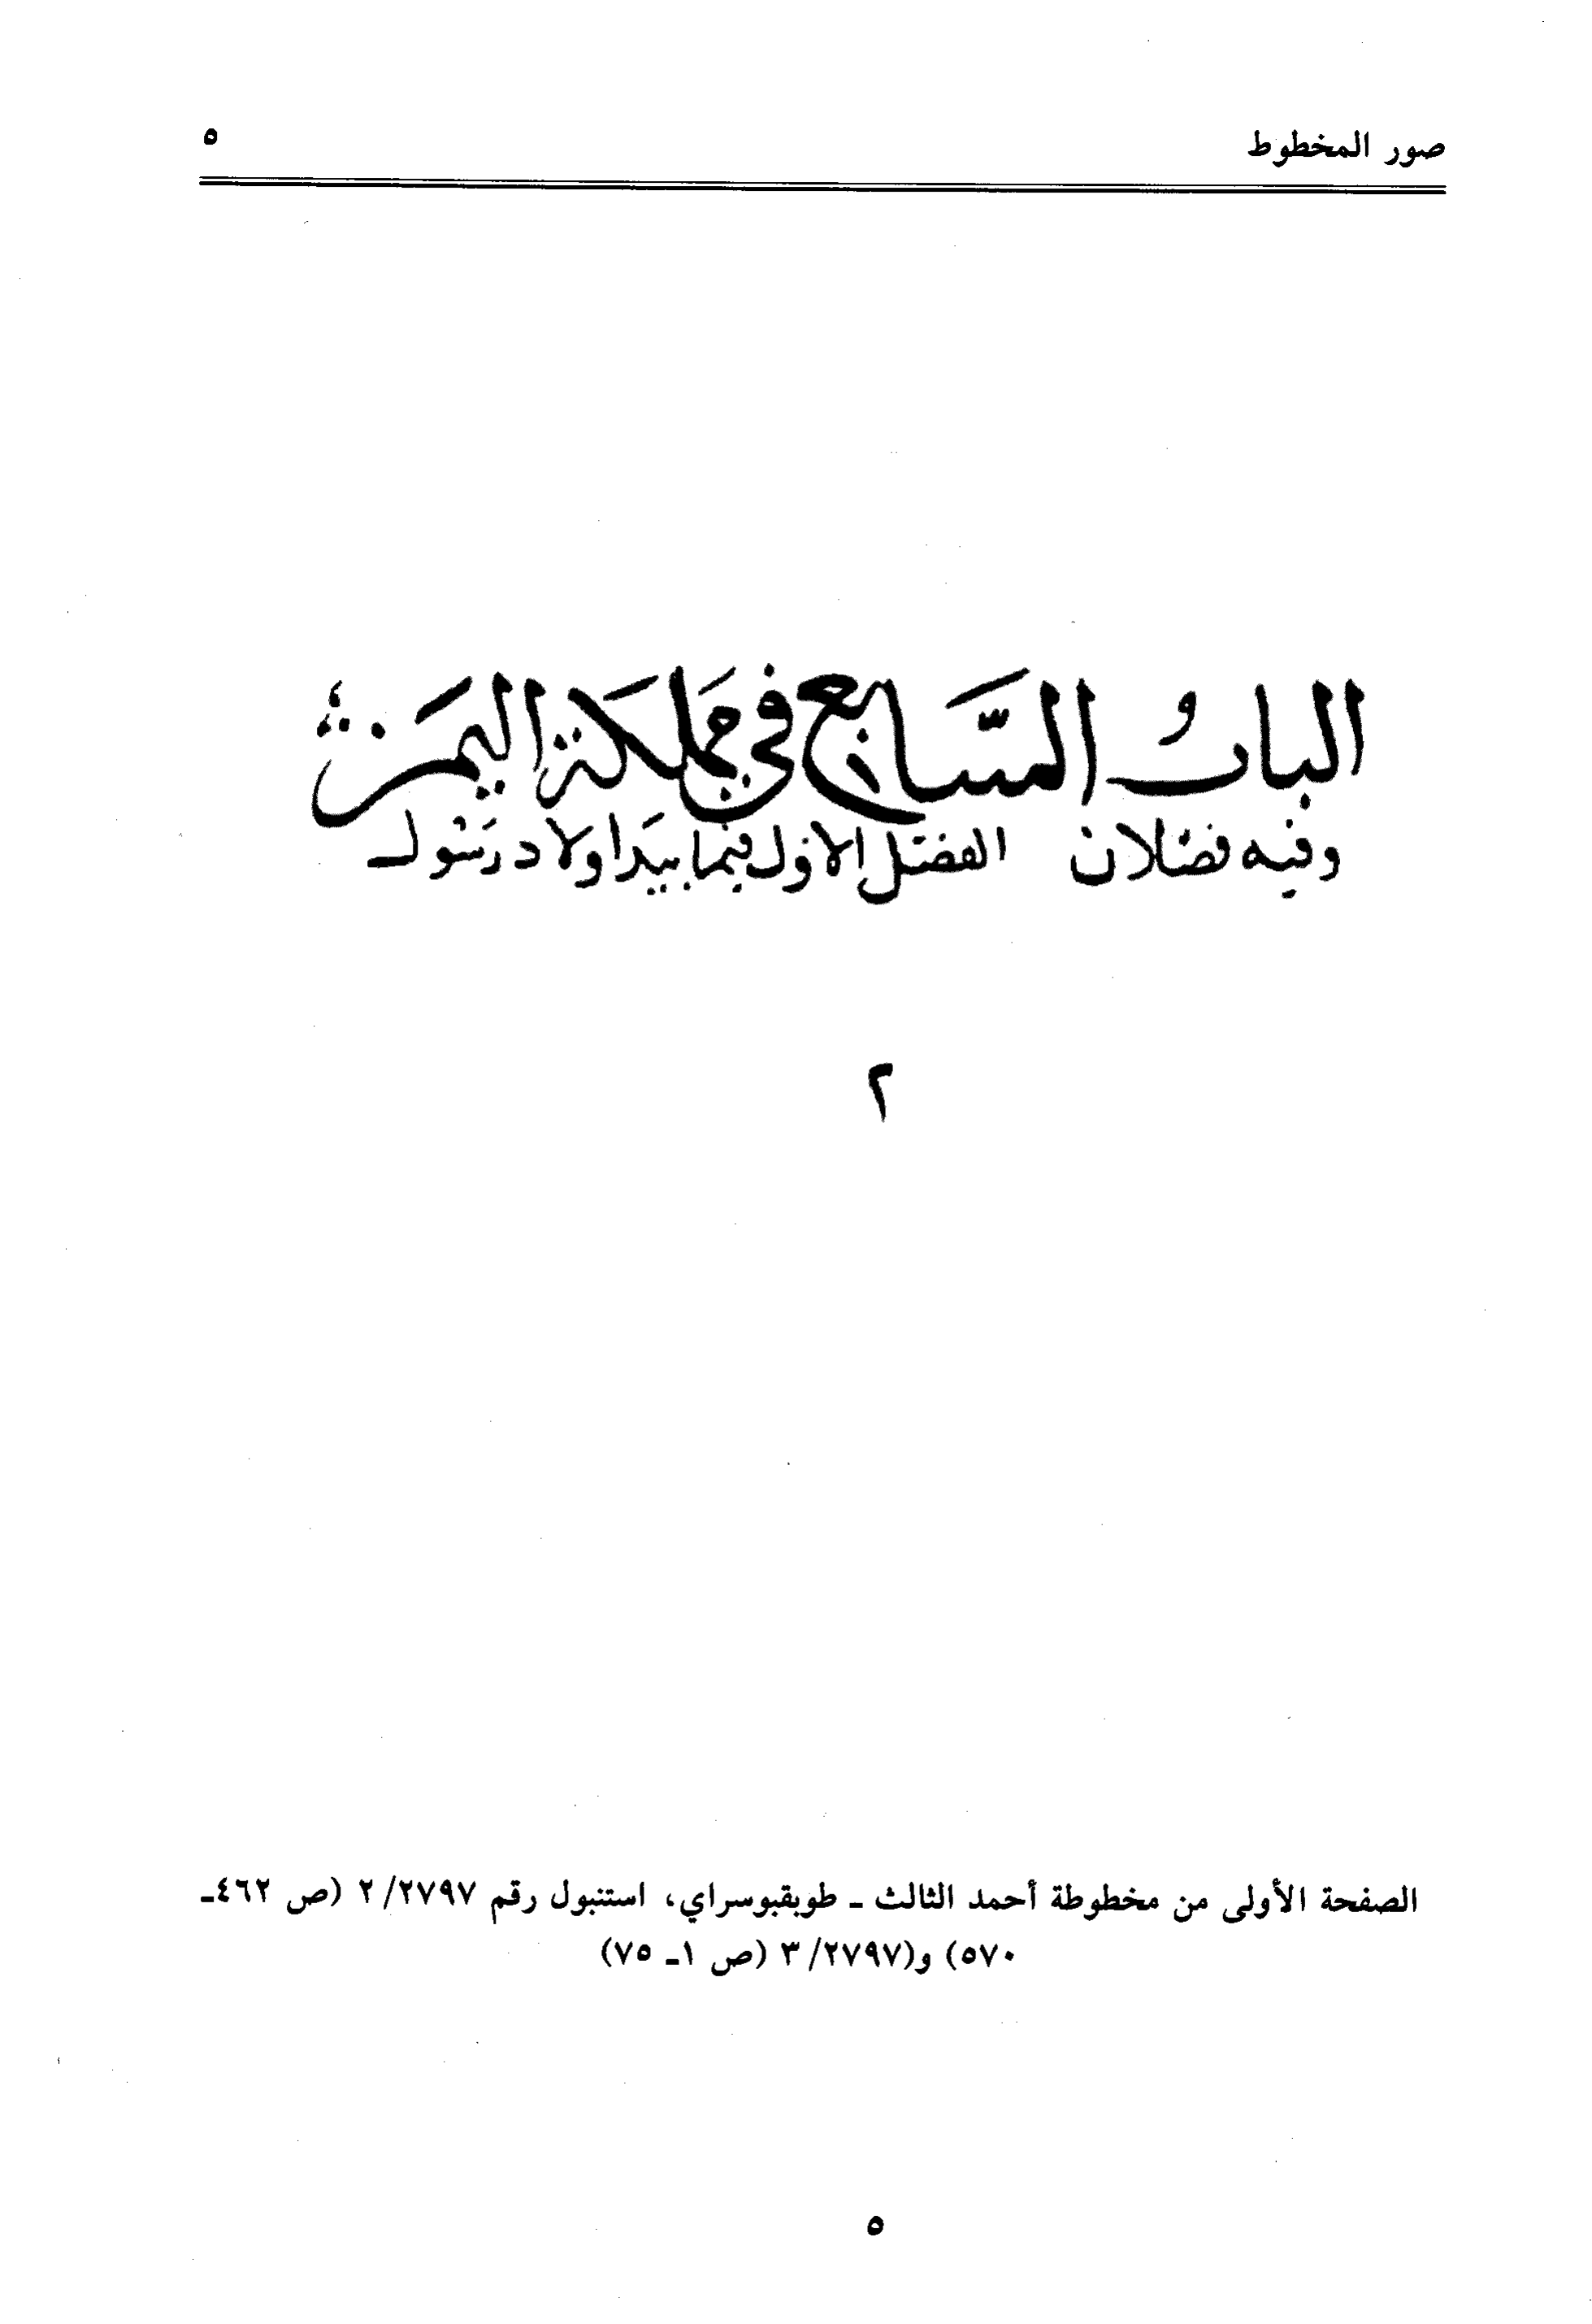 صور المخطوط ٥
الباب السابع في مملكة اليمن
وفيه فصلان الفصل الاول فيما بيد اولاد رسول
٢
الصفحة الأولى من مخطوطة أحمد الثالث ـ طوبقبوسراي، استنبول رقم ٢/٢٧٩٧ (ص ٤٦٢ـ
٥٧٠) و(٣/٢٧٩٧ (ص ١ـ ٧٥)
٥